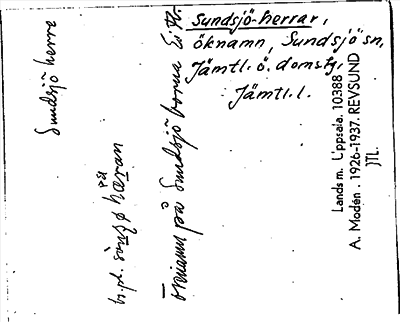 Sundsjö-herrar,
öknamn, Sundsjö sn,
Jämtl. ö. domsg,
Jämtl. l.
Sundsjö herre
b. pl.
Öknamn på Sundsjö borna
Landsm. Uppsala. 10388
A. Modén. 1926-1937. REVSUND
JTL.